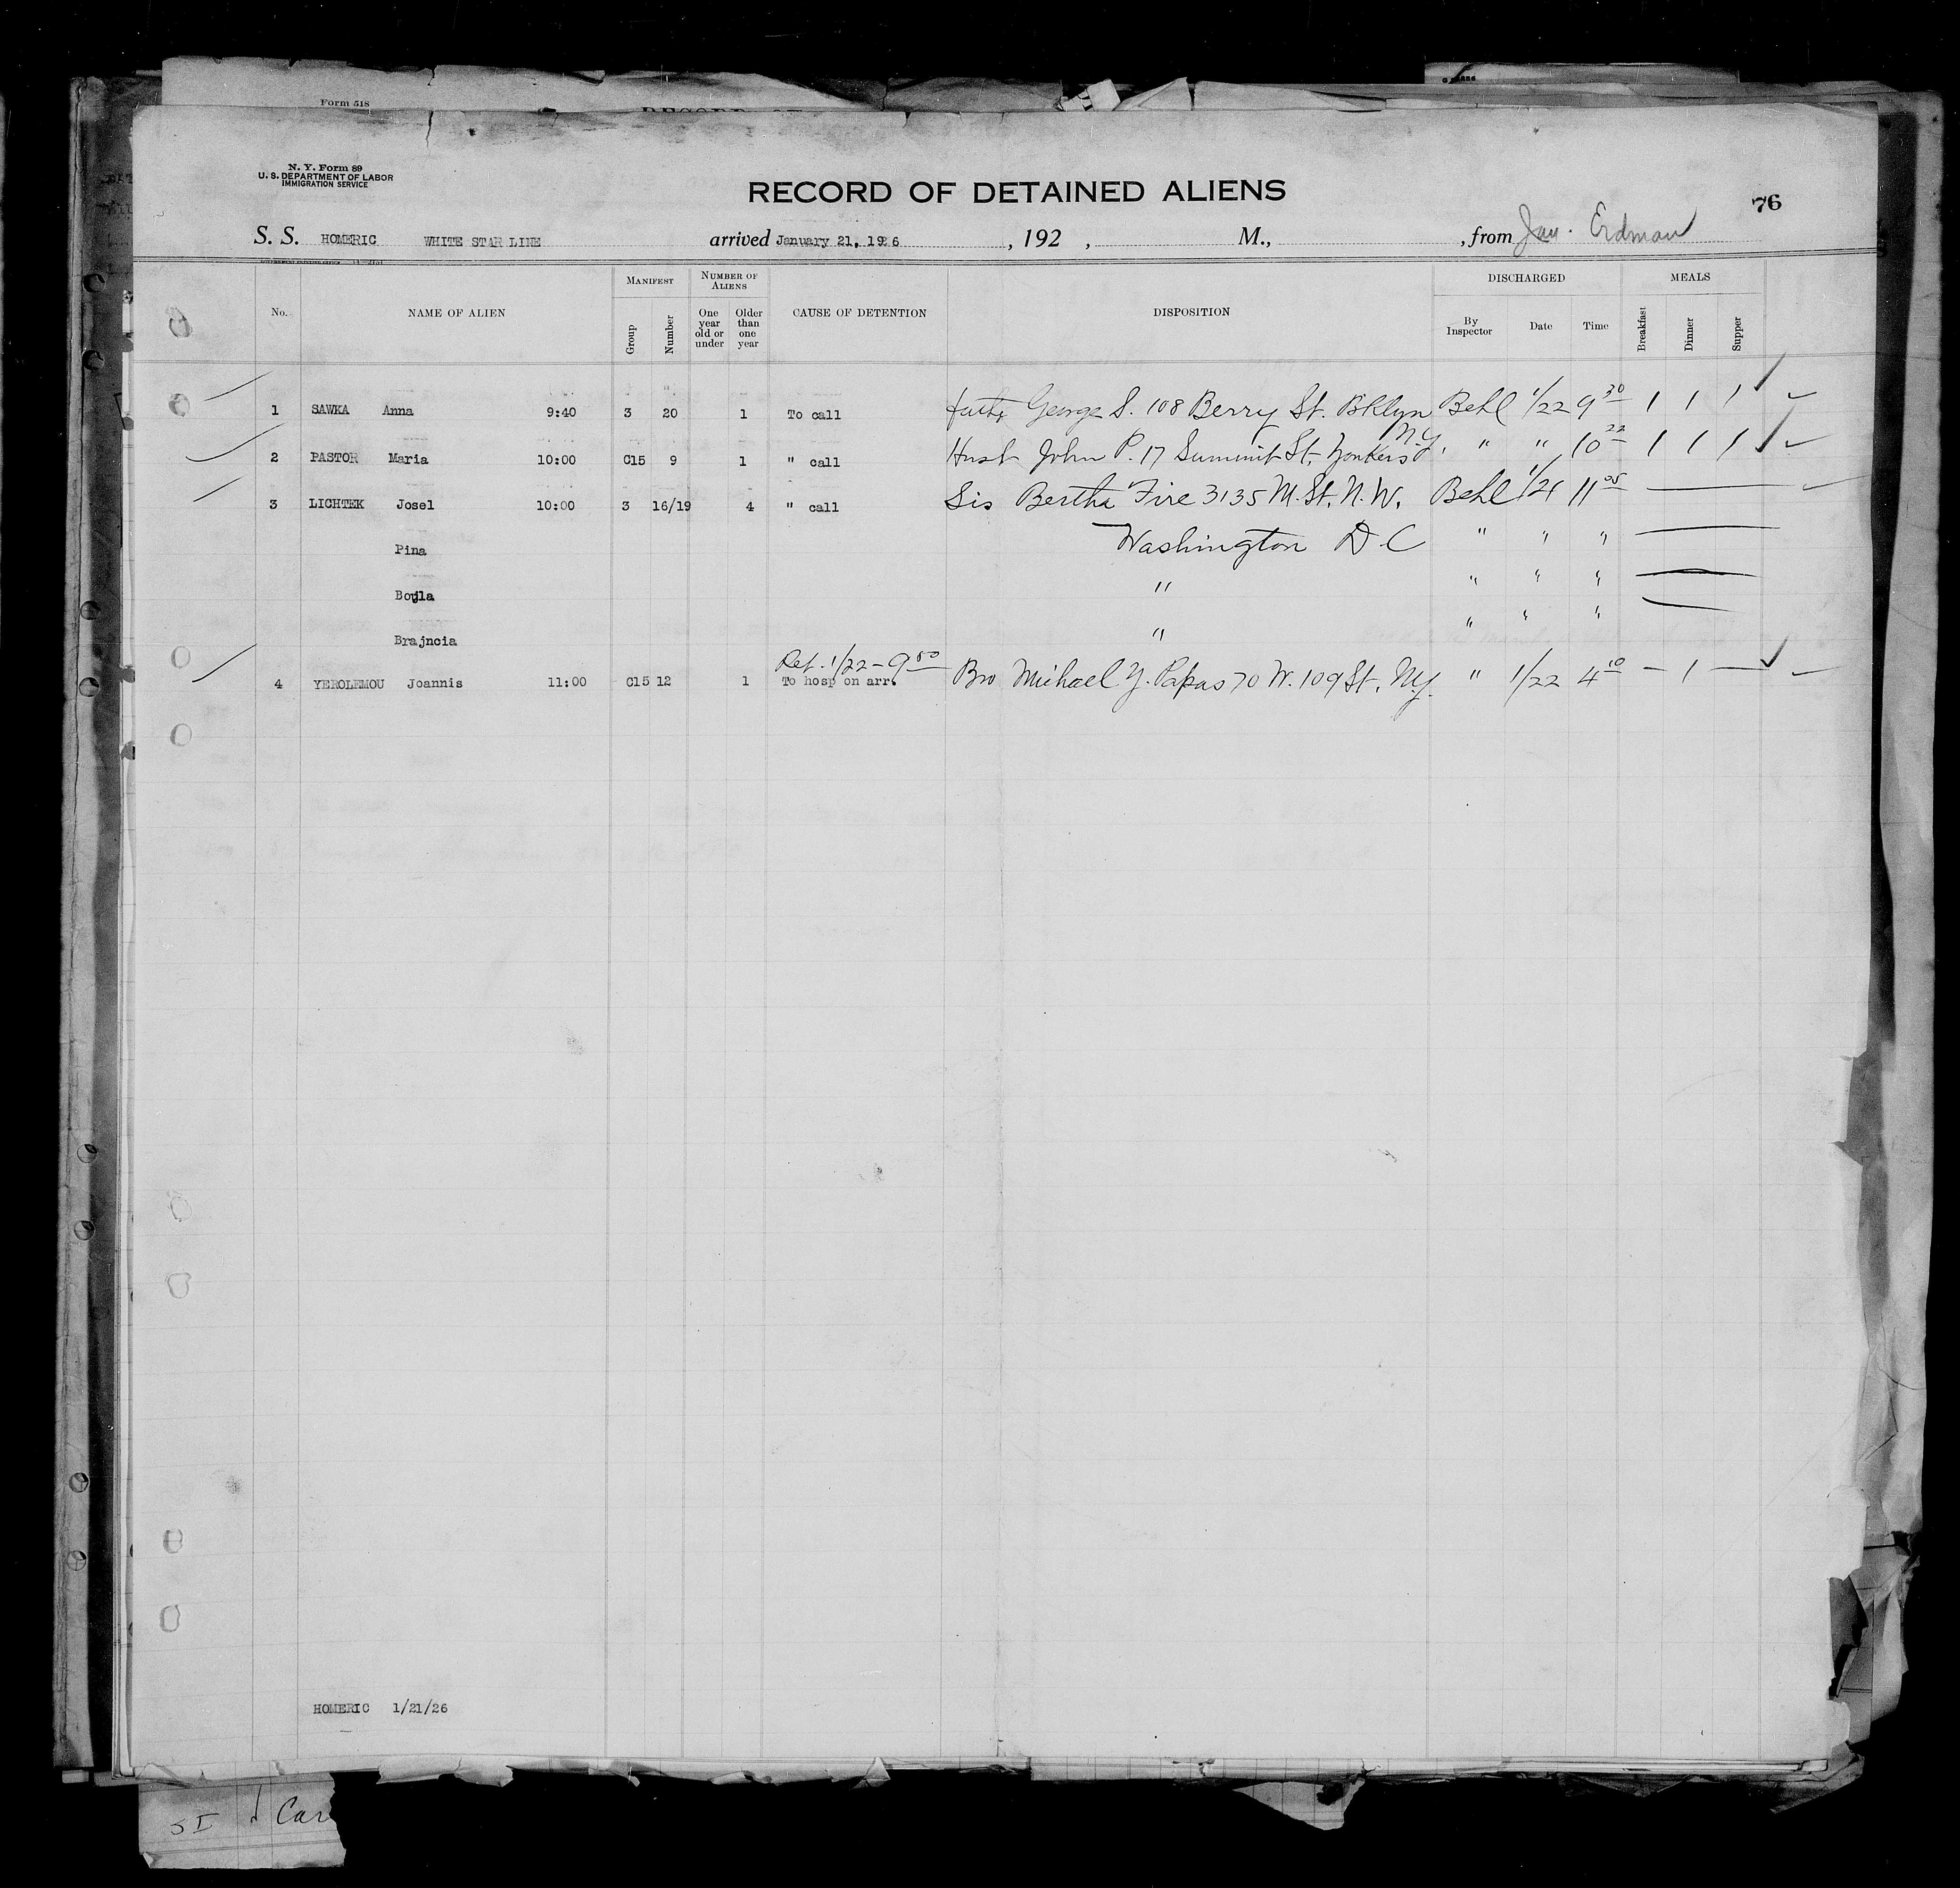 Form 518
N. Y. Form 89
U. S. DEPARTMENT OF LABOR
IMMIGRATION SERVICE
RECORD OF DETAINED ALIENS
76
S. S. HOMERIC WHITE STAR LINE arrived January 21, 1926, 192 , M., , from Erdman
No. NAME OF ALIEN MANIFEST Group Number NUMBER OF ALIENS One year old or under Older than one year CAUSE OF DETENTION DISPOSITION DISCHARGED By Inspector Date Time MEALS Breakfast Dinner Supper
1 SAWKA Anna 9:40 3 20 1 To call George S. 108 Berry St. Bklyn Behl 1/22 9 30 1 1 1
N.Y.
2 PASTOR Maria 10:00 C15 9 1 " call Husb John P. 17 Summit St. Yonkers " " 10 22 1 1 1
3 LICHTEK Josel 10:00 3 16/19 4 " call Sis Bertha Fire 3135 M. St. N. W. Behl 1/21 11 05 —
Pina Washington D C " " " —
Bojla " " " " —
Brajncia " " " " —
Ret. 1/22 - 9 50
4 YEROLEMOU Joannis 11:00 C15 12 1 To hosp on arr. Bro Michael Y. Papas 70 W. 109 St. N.Y. " 1/22 4 10 — 1 —
HOMERIC 1/21/26
SI Car